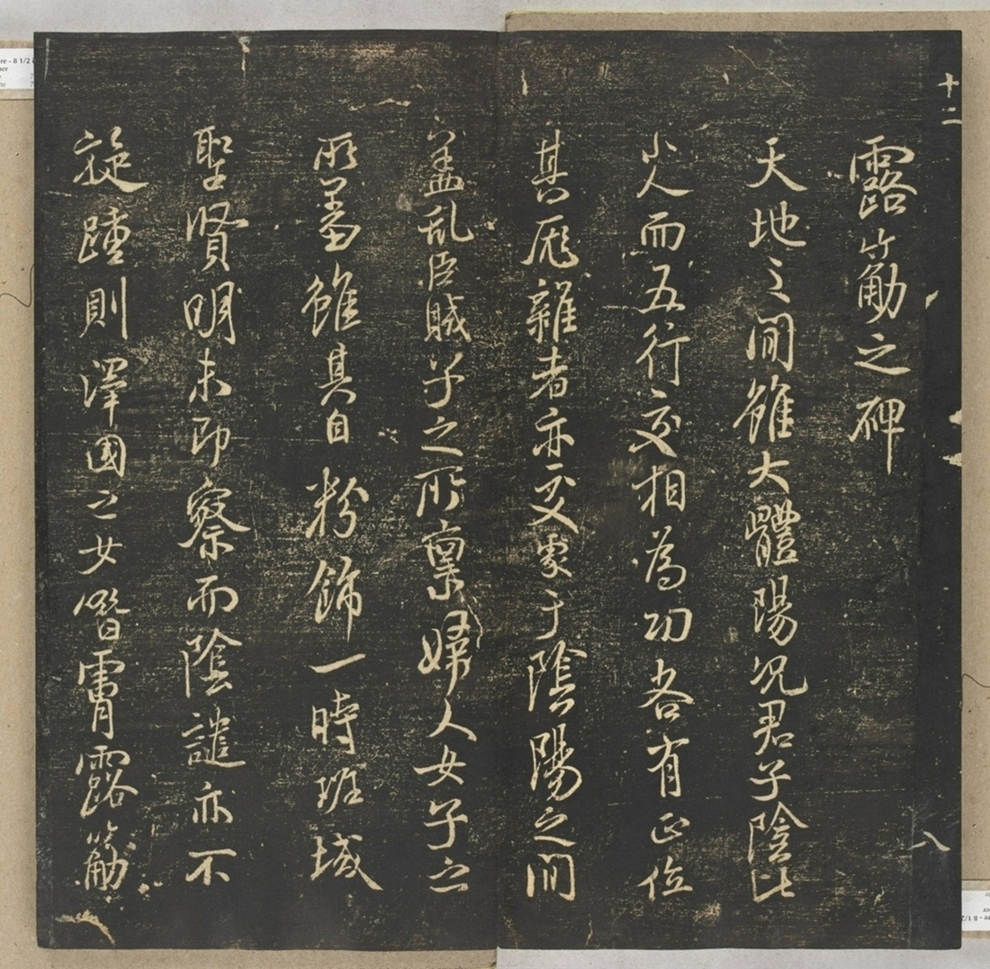 十二
露筋之碑
天地之間雖大體陽況君子陰比
小人而五行交相為功各有正位
其厖雜者亦交蒙于陰陽之間
蓋乱臣賊子之所稟婦人女子之
所羞雖其自粉飾一時班域
聖賢明未即察而陰譴亦不
旋踵則澤國之女僭霄露筋
八